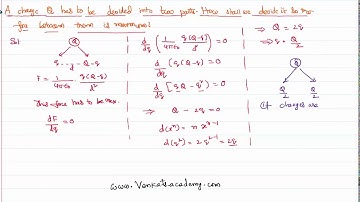 A charge Q has to be divided into two parts. How shall we decide it so that
force between them is maximum?
Sol:
Q
q - d - Q-q
F = 1/4πε₀ q(Q-q)/d²
This force has to be max.
dF/dq = 0
d/dq (1/4πε₀ q(Q-q)/d²) = 0
d/dq (q(Q-q)) = 0
d/dq [qQ - q²] = 0
⇒ Q - 2q = 0
d(xⁿ) = n xⁿ⁻¹
d(q²) = 2 q²⁻¹ = 2q
⇒ Q = 2q
⇒ q = Q/2
Q
Q/2 Q/2
If charges are
www.venkatsacademy.com